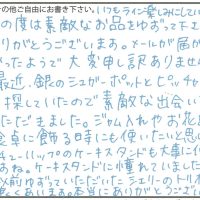 の他ご自由にお書き下さい。いつもライン楽しみにしてい
の度は素敵なお品をゆずって下さ
りがとうございまる。メールが届か
ったようで大変申し訳ありません
最近、銀のシュガーポットとピッチャー
探していたので素敵な出会い
ただきました。ジャム入れやお花
食卓に飾る時にも使いたいと思い
チューリップのケーキスタンドも大事に使
すね。ケーキスタンドに憧れていました
以前ゆずっていただいたシェリーのトリオ
しくあります。本当にありがとうござい